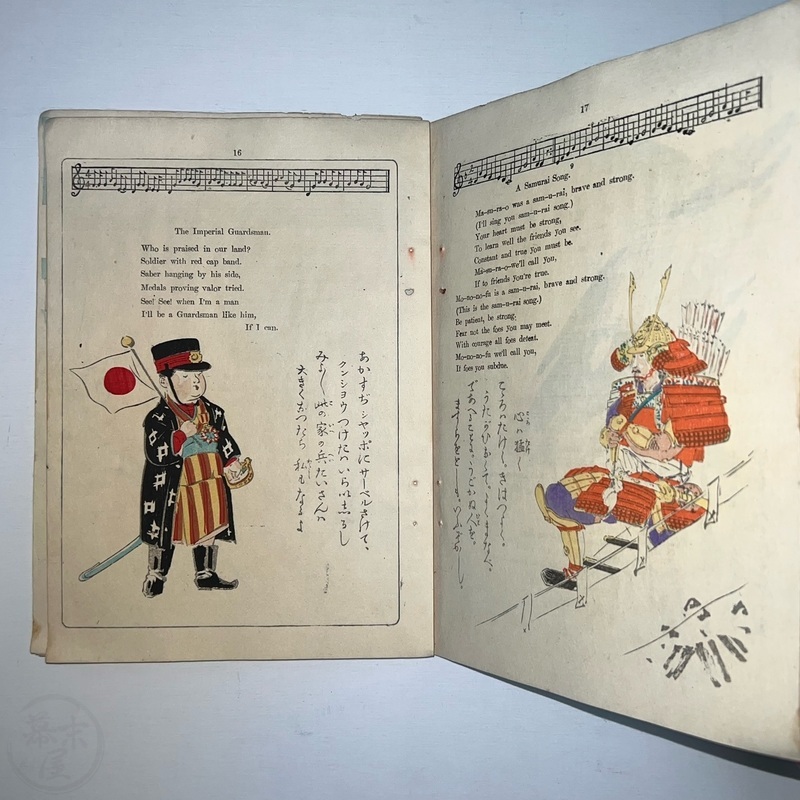 16
The Imperial Guardsman.
Who is praised in our land?
Soldier with red cap band.
Saber hanging by his side,
Medals proving valor tried.
See! See! when I'm a man
I'll be a Guardsman like him,
If I can.
あかすぢシャッポにサーベルさげて、
クンショウつけたの
みよ〳〵此の家の兵たいさんは
大きくなつたら私もなるよ
17
9
A Samurai Song.
Ma-su-ra-o was a sam-u-rai, brave and strong.
(I'll sing you sam-u-rai song.)
Your heart must be strong,
To learn well the friends you see.
Constant and true you must be.
Ma-su-ra-o-we'll call you,
If to friends you're true.
Mo-no-no-fu is a sam-u-rai, brave and strong.
(This is the sam-u-rai song.)
Be patient, be strong,
Fear not the foes you may meet.
With courage all foes defeat.
Mo-no-no-fu we'll call you,
If foes you subdue.
心は猛く
幕末屋